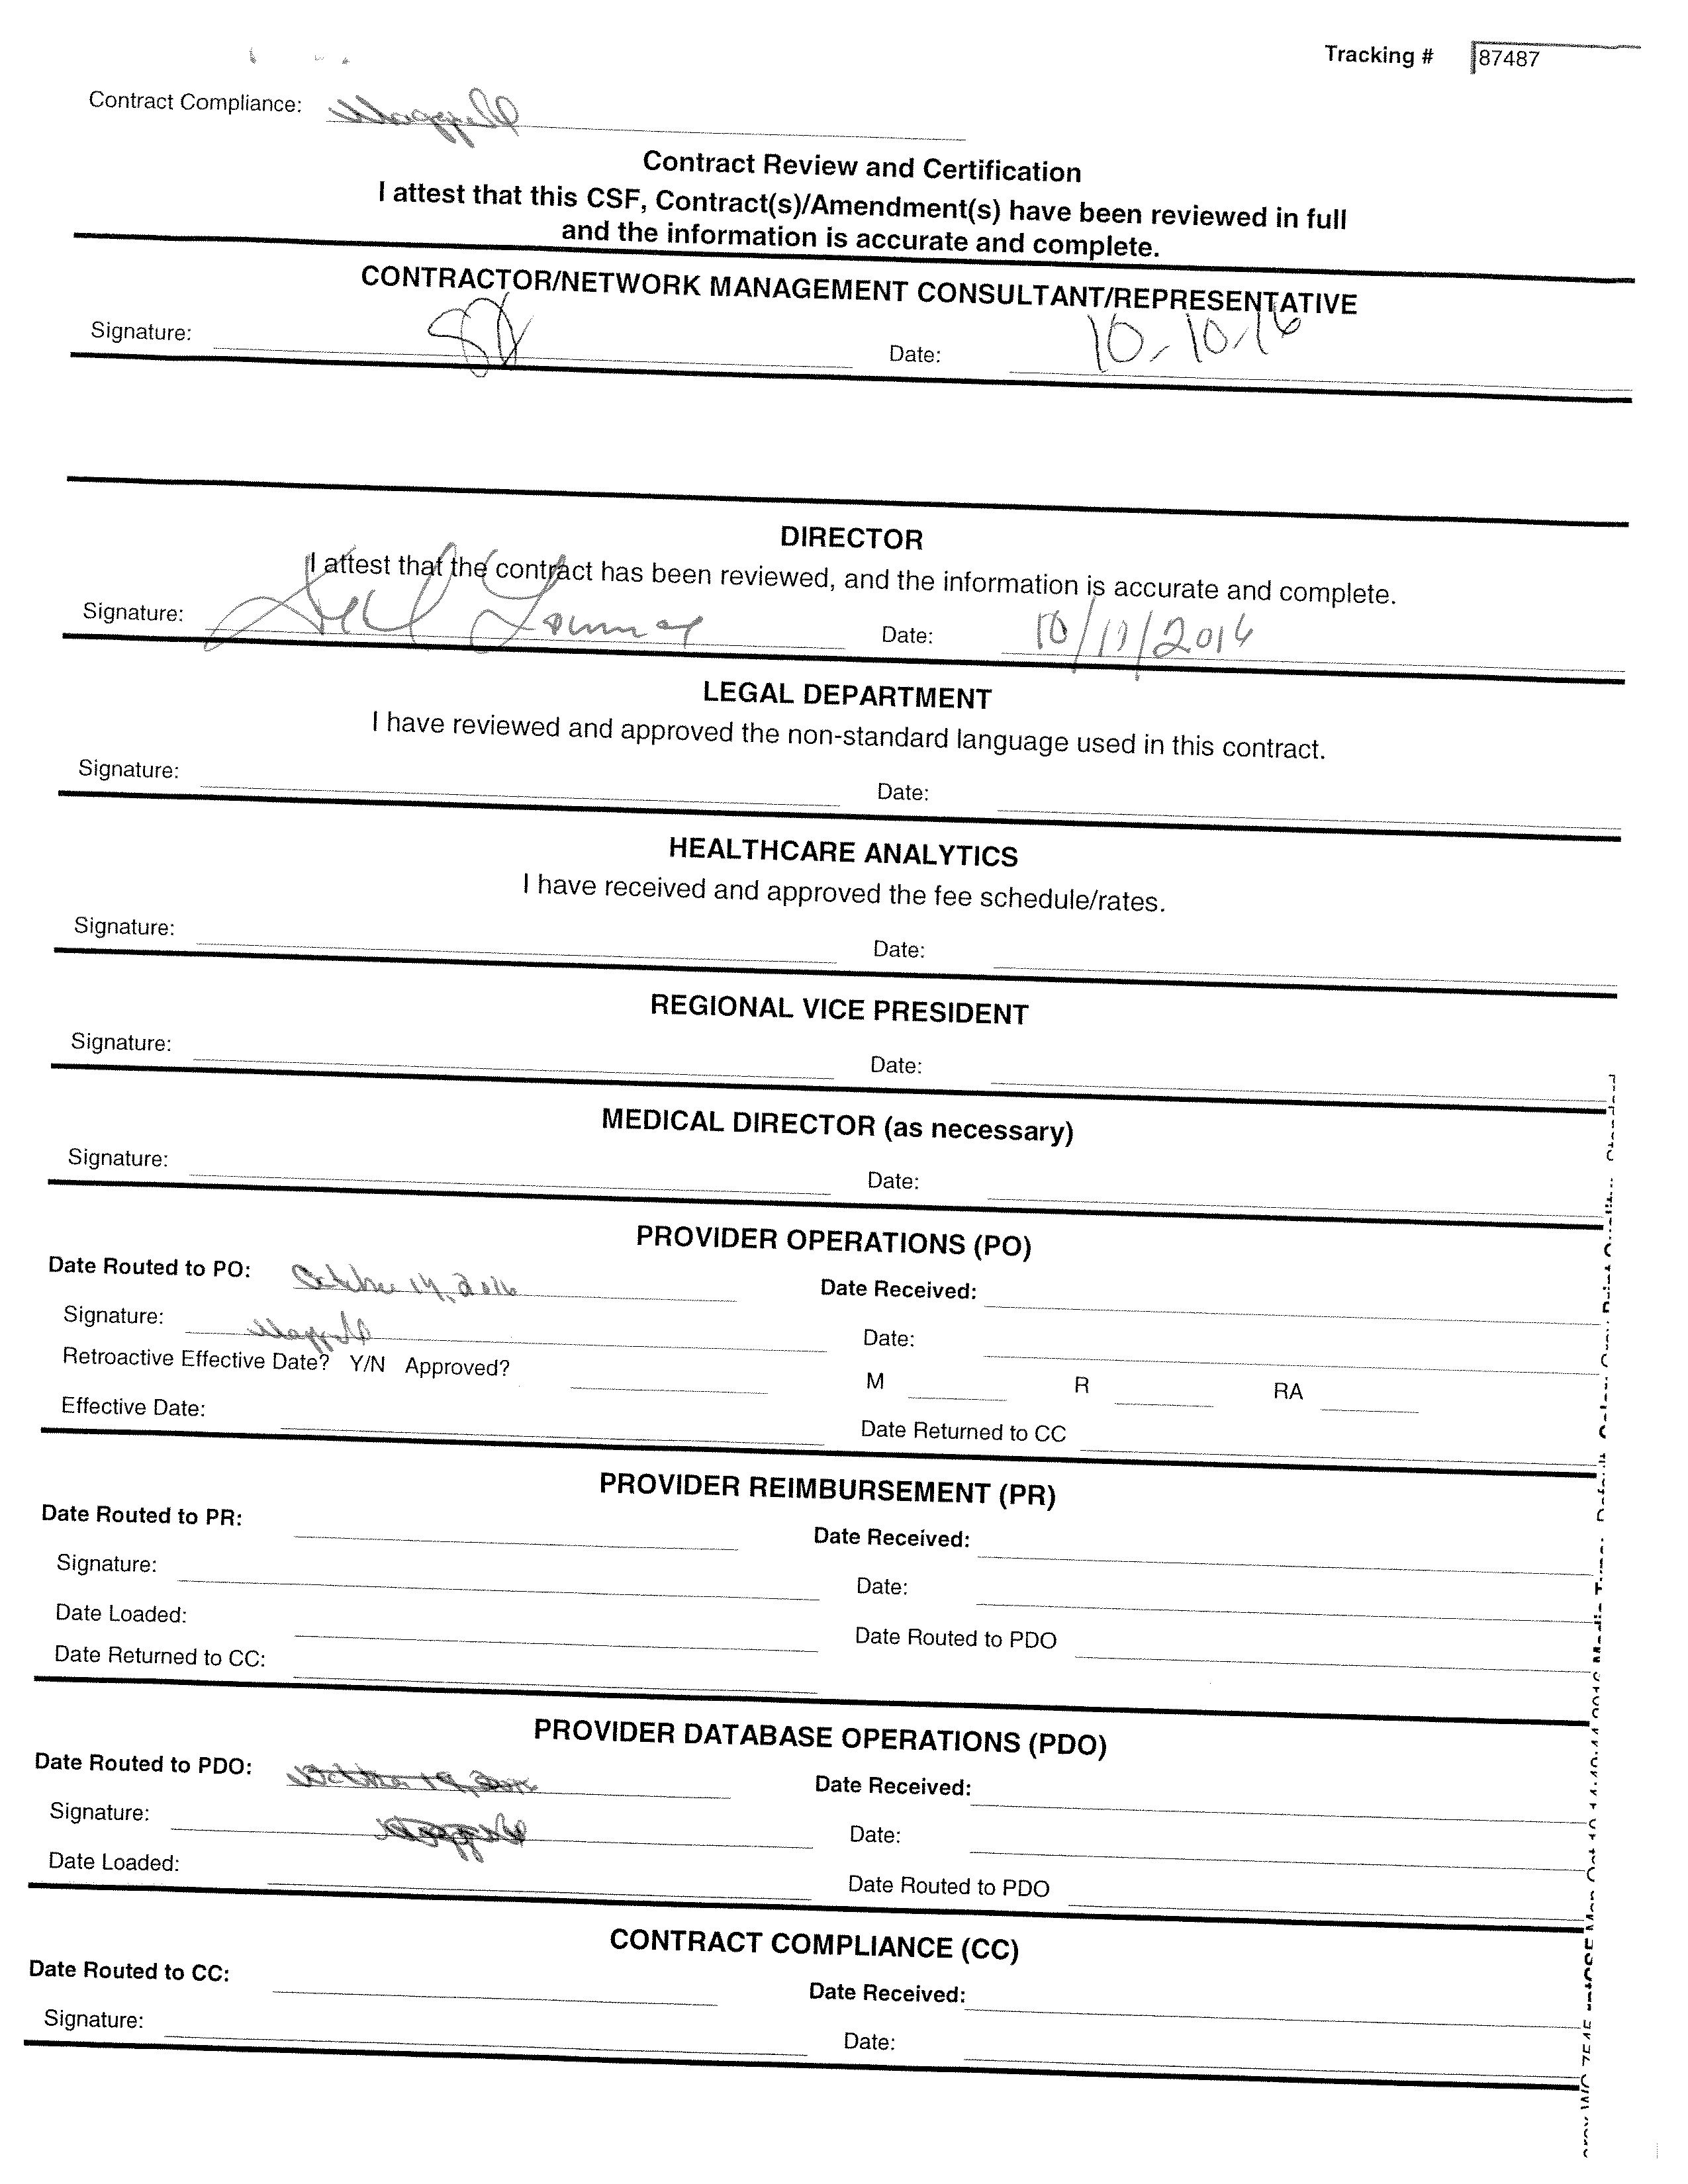 Tracking # 87487
Contract Compliance:
Contract Review and Certification
I attest that this CSF, Contract(s)/Amendment(s) have been reviewed in full
and the information is accurate and complete.
CONTRACTOR/NETWORK MANAGEMENT CONSULTANT/REPRESENTATIVE
Signature: Date: 10-10-16
DIRECTOR
I attest that the contract has been reviewed, and the information is accurate and complete.
Signature: Date: 10/11/2016
LEGAL DEPARTMENT
I have reviewed and approved the non-standard language used in this contract.
Signature: Date:
HEALTHCARE ANALYTICS
I have received and approved the fee schedule/rates.
Signature: Date:
REGIONAL VICE PRESIDENT
Signature: Date:
MEDICAL DIRECTOR (as necessary)
Signature: Date:
PROVIDER OPERATIONS (PO)
Date Routed to PO: October 14, 2016 Date Received:
Signature: Date:
Retroactive Effective Date? Y/N Approved? M R RA
Effective Date: Date Returned to CC
PROVIDER REIMBURSEMENT (PR)
Date Routed to PR: Date Received:
Signature: Date:
Date Loaded: Date Routed to PDO
Date Returned to CC:
PROVIDER DATABASE OPERATIONS (PDO)
Date Routed to PDO: Date Received:
Signature: Date:
Date Loaded: Date Routed to PDO
CONTRACT COMPLIANCE (CC)
Date Routed to CC: Date Received:
Signature: Date: